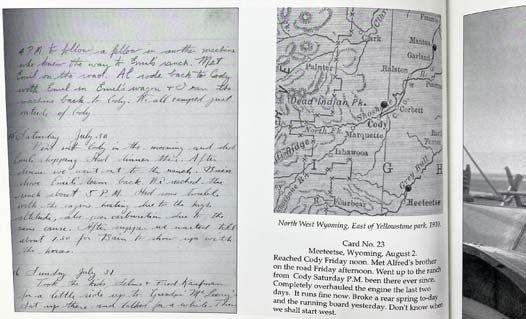 4 P.M. to follow a fellow in another machine
who knew the way to Emil's ranch. Met
Emil on the road. Al rode back to Cody
with Emil in Emil's wagon + I ran the
machine back to Cody. We all camped just
outside of Cody.
Saturday July 30
Went into Cody in the morning and did
some shopping. Had dinner there. After
dinner we went out to the ranch.
drove Emil's team back. We reached the
ranch about 5 P.M. Had some trouble
with the engine heating due to the high
altitude, also poor carburation due to the
same cause. After supper we waited till
about 1.30 for to show up with
the horses.
Sunday July 31
Took the kids, Helen + Fred Kaufman
for a little ride up to
up there and talked for a while. Then
Clark
Painter
Ralston
Garland
Mantua
Frannie
Dead Indian Pk.
Shosh
Corbett
Cody
North Fk.
Marquette
Ishawooa
Valley
Fourbear
Grey Bull
Meeteetse
G H
North West Wyoming, East of Yellowstone park, 1910.
Card No. 23
Meeteetse, Wyoming, August 2.
Reached Cody Friday noon. Met Alfred's brother
on the road Friday afternoon. Went up to the ranch
from Cody Saturday P.M. been there ever since.
Completely overhauled the engine the last two
days. It runs fine now. Broke a rear spring to-day
and the running board yesterday. Don't know when
we shall start west.